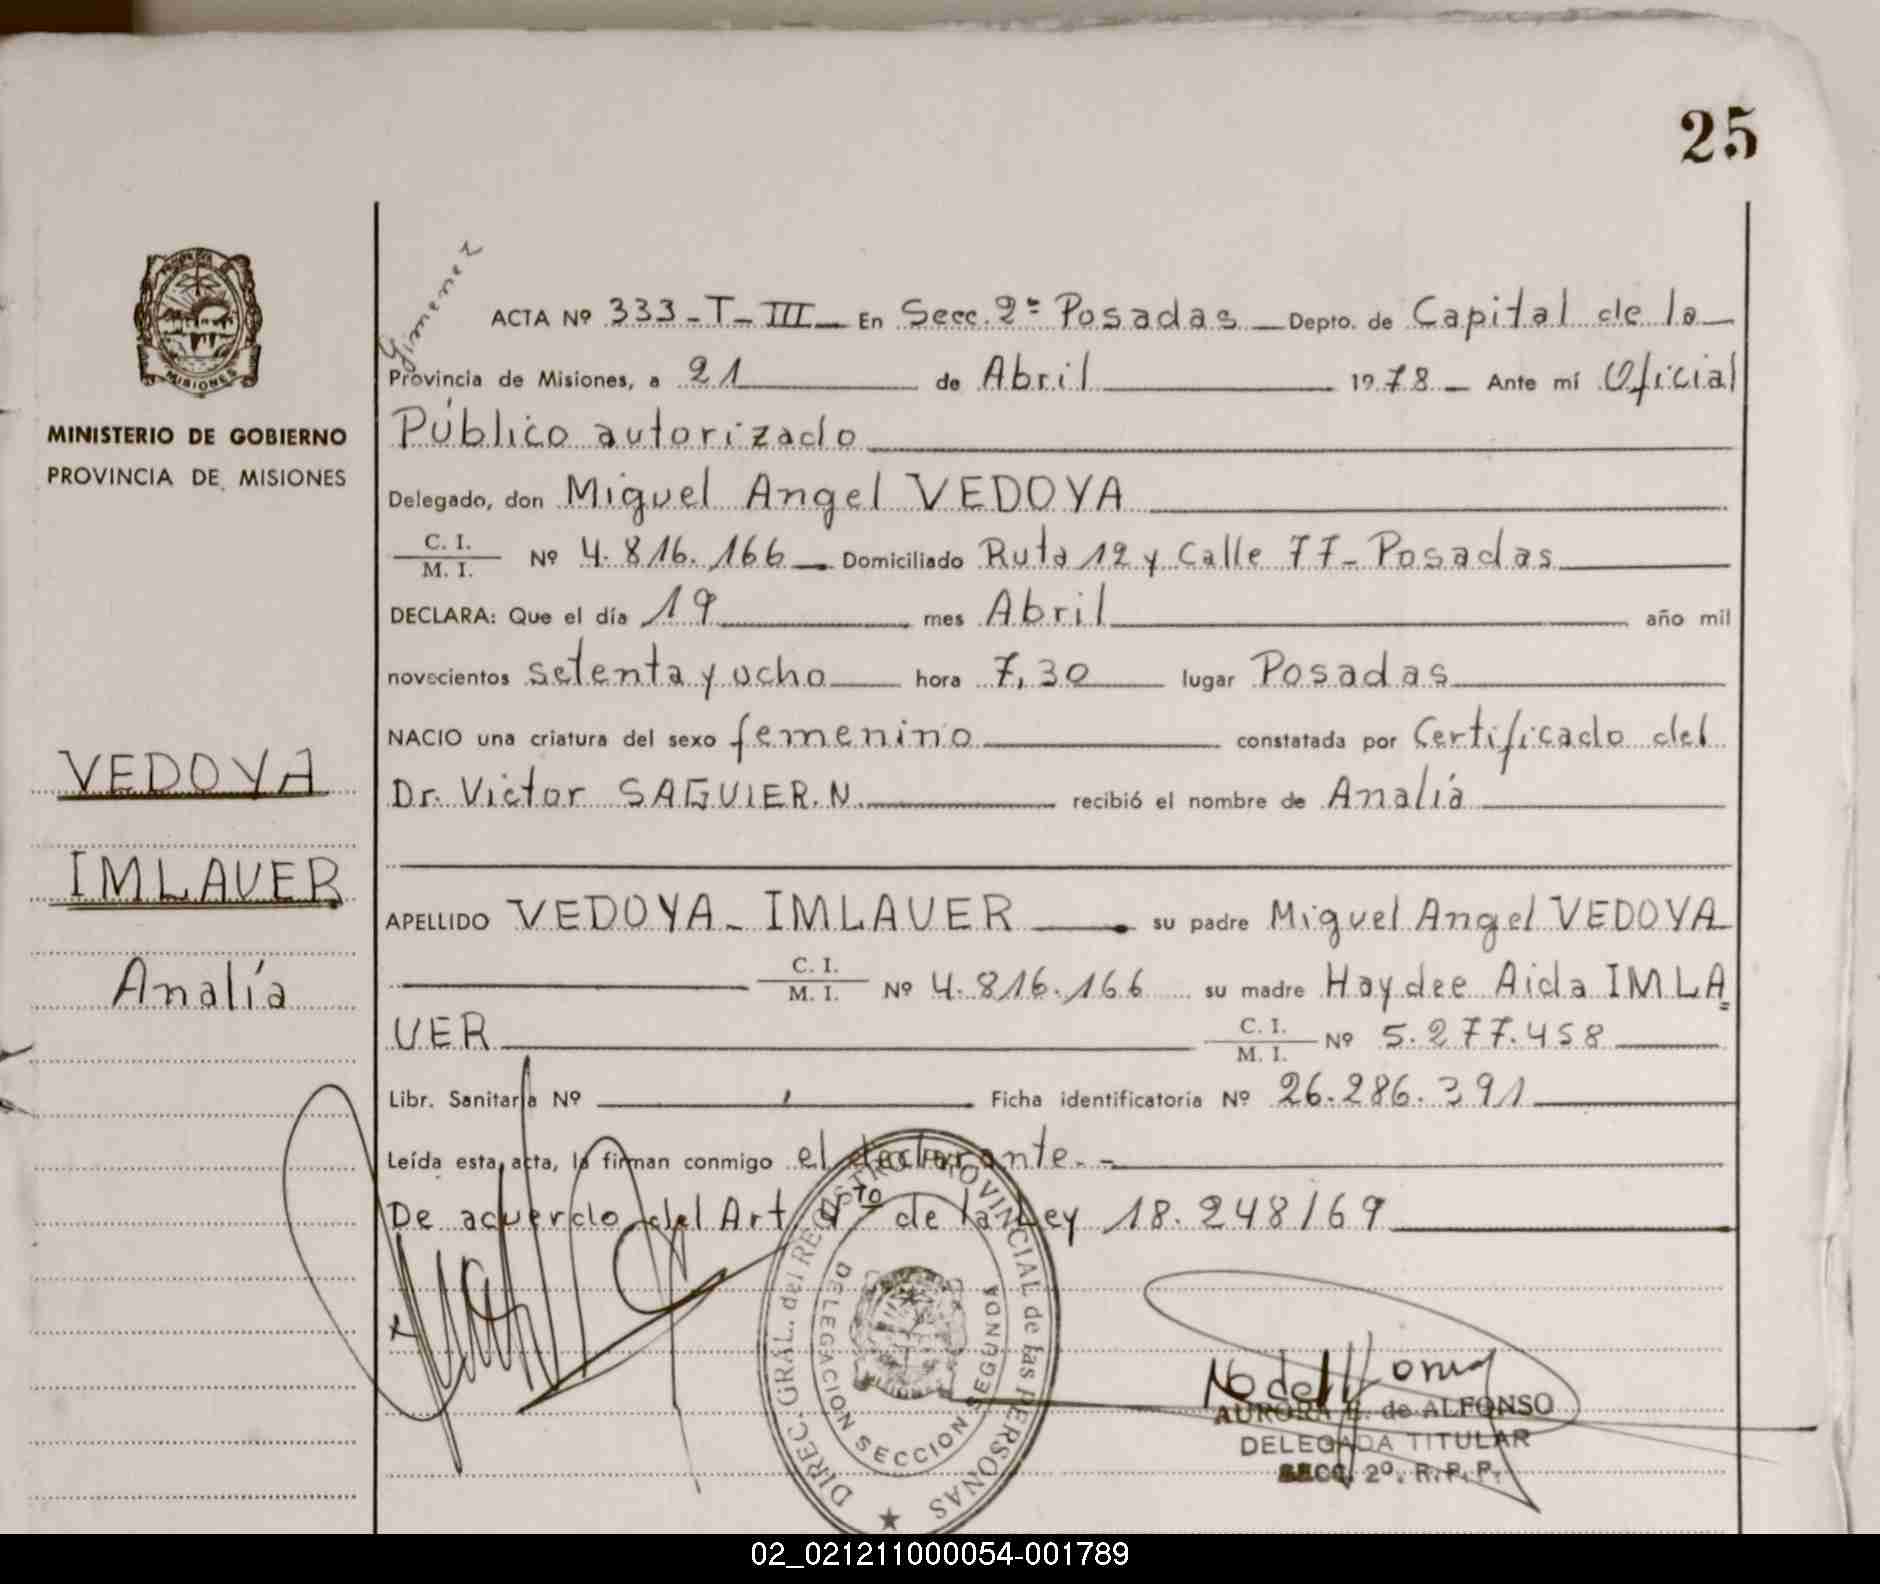 25
Gimenez
MISIONES
MINISTERIO DE GOBIERNO
PROVINCIA DE MISIONES
VEDOYA
IMLAUER
Analía
ACTA Nº 333-T-III- En Secc. 2ª Posadas Depto. de Capital de la
Provincia de Misiones, a 21 de Abril 1978 Ante mí Oficial
Público autorizado
Delegado, don Miguel Angel VEDOYA
C. I.
M. I. Nº 4.816.166 Domiciliado Ruta 12 y Calle 77- Posadas
DECLARA: Que el día 19 mes Abril año mil
novecientos setenta y ocho hora 7,30 lugar Posadas
NACIO una criatura del sexo femenino constatada por Certificado del
Dr. Victor SAGUIER. N. recibió el nombre de Analía
APELLIDO VEDOYA - IMLAUER su padre Miguel Angel VEDOYA
C. I.
M. I. Nº 4.816.166 su madre Haydee Aida IMLA=
UER C. I.
M. I. Nº 5.277.458
Libr. Sanitaria Nº Ficha identificatoria Nº 26.286.391
Leída esta acta, la firman conmigo el declarante.-
De acuerdo del Art. to de la Ley 18.248/69
DIREC. GRAL. del REGISTRO PROVINCIAL de las PERSONAS
DELEGACION SECCION SEGUNDA
AURORA de ALFONSO
DELEGADA TITULAR
SECC. 2º. R. P. P.
02_021211000054-001789